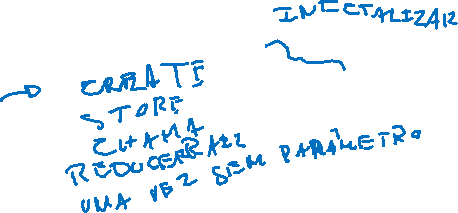 INECTALIZAR
CREATE
STORE
CHAMA
REDUCERRAIZ
UMA VEZ SEM PARÂMETRO